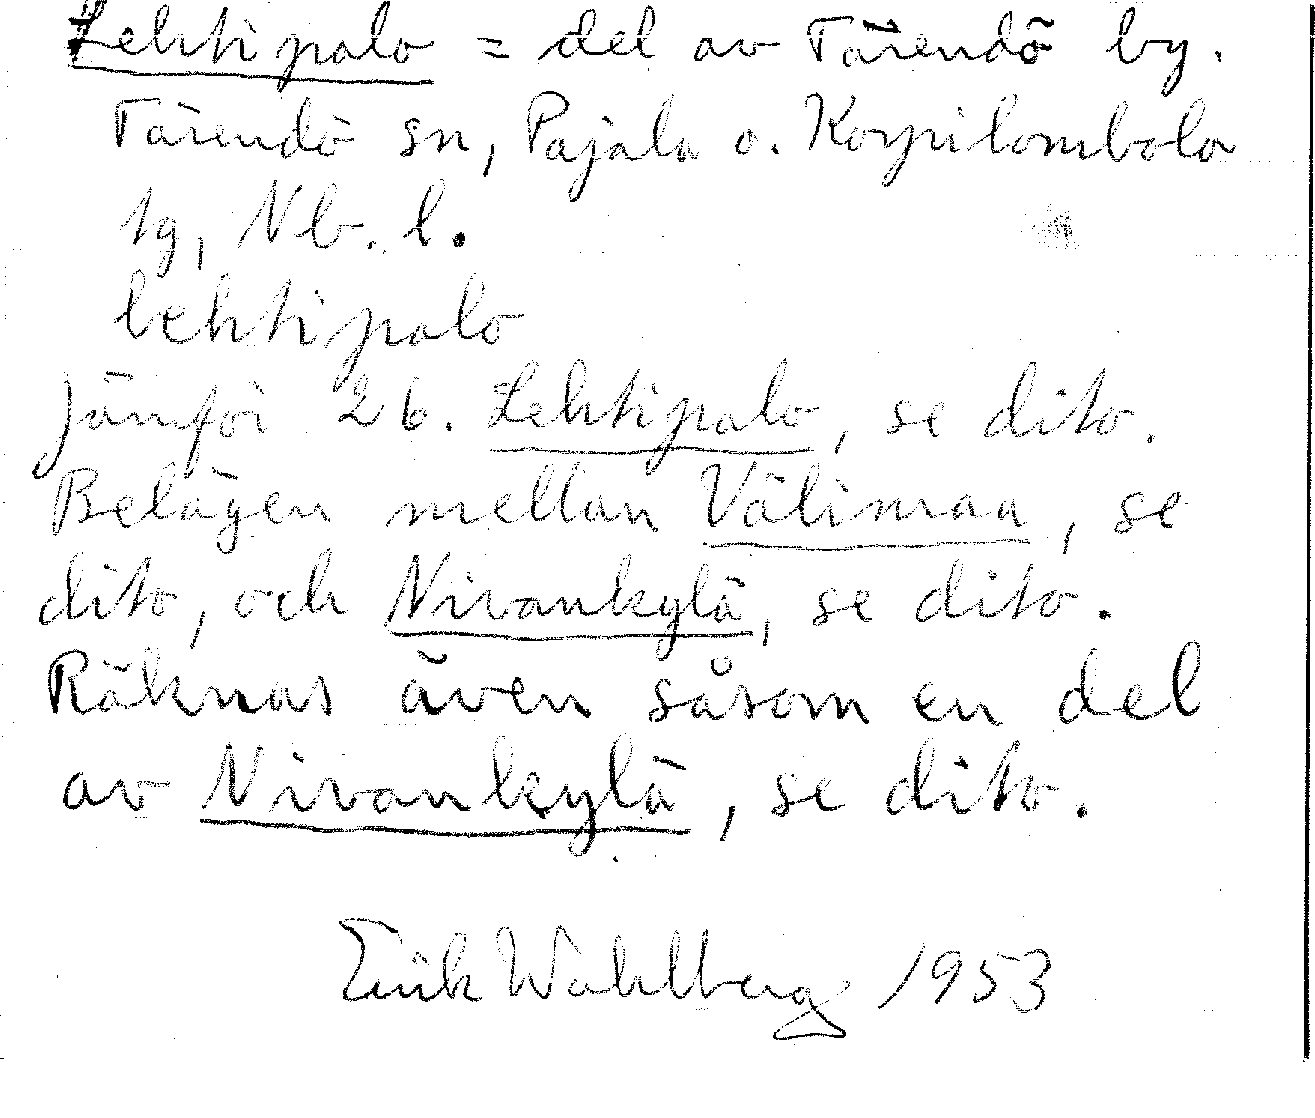 Lehtipalo = del av Tärendö by.
Tärendö sn, Pajala o. Korpilombolo
tg, Nb. l.
lehtipalo
Jämför 26. Lehtipalo, se dito.
Belägen mellan Välimaa, se
dito, och Nivankylä, se dito.
Räknas även såsom en del
av Nivankylä, se dito.
Erik Wahlberg 1953